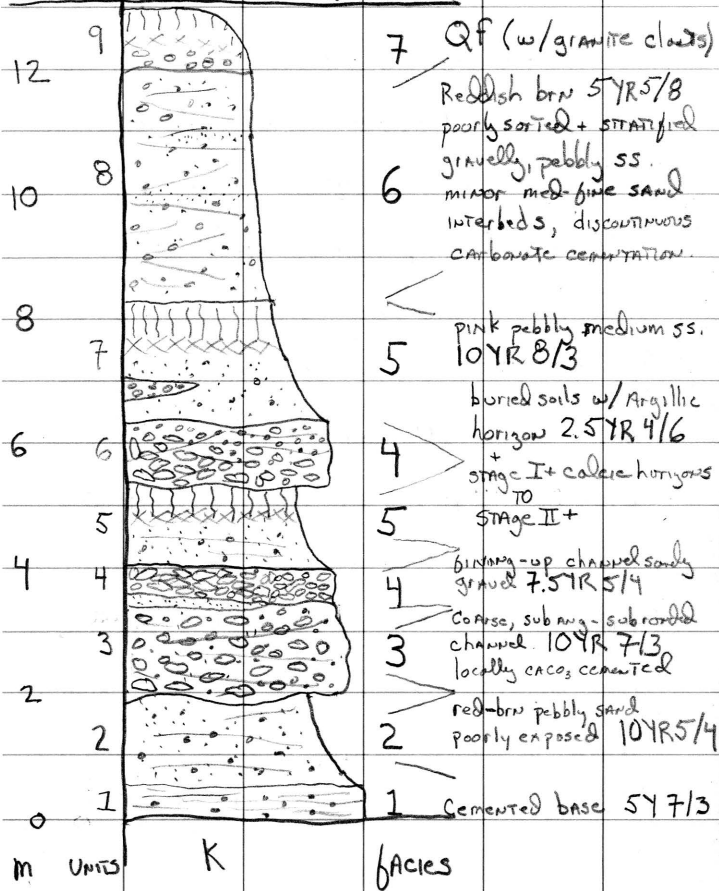 9
7 QF (w/granite clasts)
12
Reddish brn 5YR5/8
poorly sorted + stratified
gravelly, pebbly ss.
8
6
10
minor med-fine sand
interbeds, discontinuous
carbonate cementation.
8
pink pebbly medium ss.
7
5
10YR 8/3
buried soils w/ Argillic
horizon 2.5YR 4/6
6
6
4
+
stage I+ calcic horizons
TO
5
5
stage II+
fining-up channel sandy
4
4
4
gravel 7.5YR 5/4
coarse, subang-subronded
3
3
channel. 10YR 7/3
locally CACO3 cemented
2
red-brn pebbly sand
2
2
poorly exposed 10YR5/4
1
1
Cemented base 5Y 7/3
0
m UNITS K facies